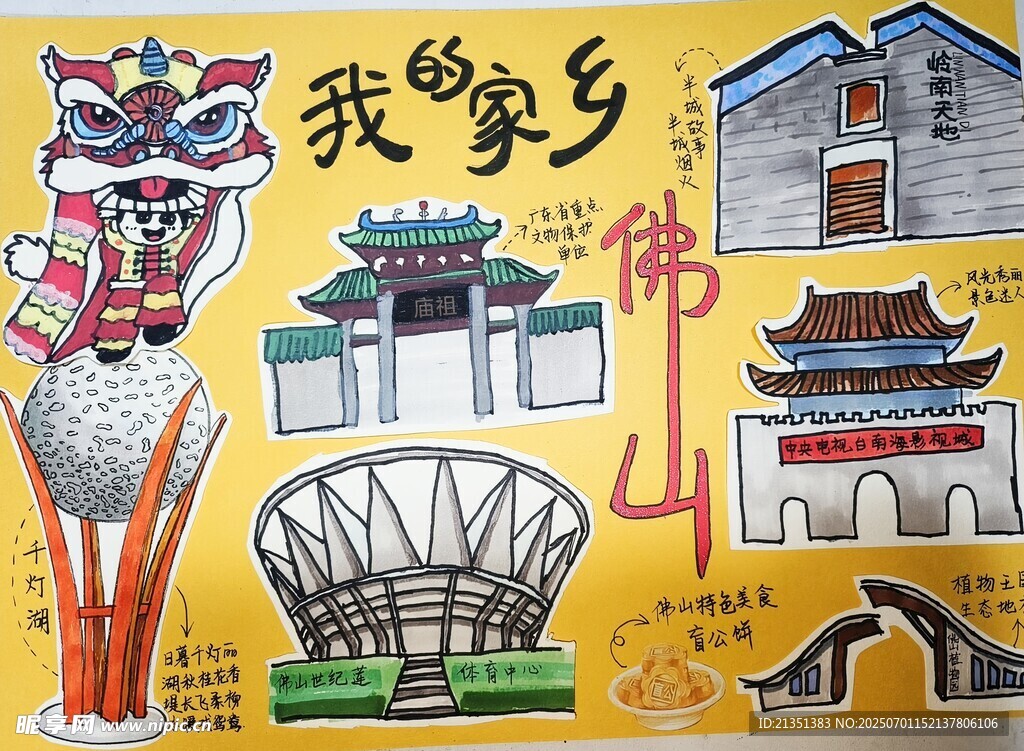 我的家乡
佛山
半城故事
半城烟火
岭南天地
LINNANTIANDI
广东省重点
文物保护
单位
祖庙
风光秀丽
景色迷人
中央电视台南海影视城
千灯湖
日暮千灯丽
湖秋桂花香
堤长飞柔柳
鸳鸯
佛山世纪莲
体育中心
佛山特色美食
盲公饼
植物王国
生态地
个
昵享网 www.nipic.cn
ID:21351383 NO:20250701152137806106